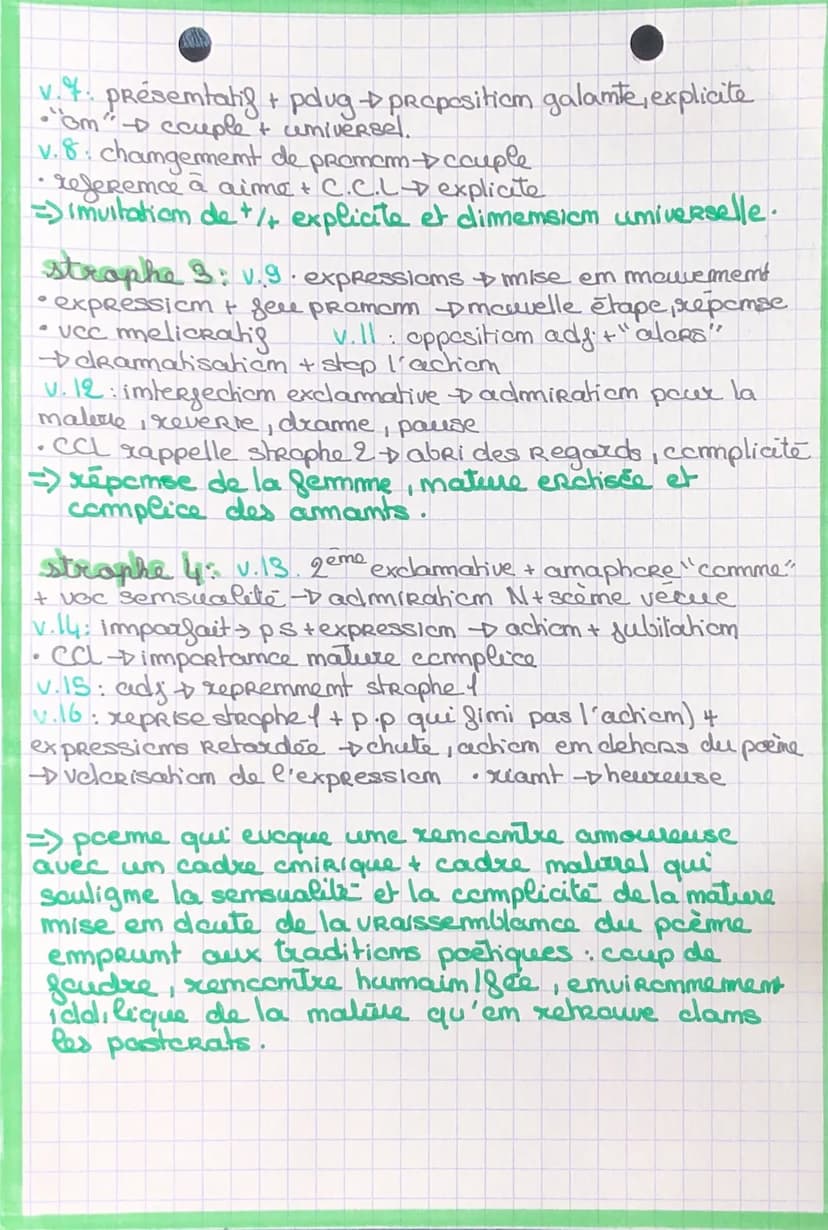 v.7: présentatif + pdvg → proposition galante, explicite
• "on" → couple + universel.
v.8: changement de pronom → couple
• reference à aima + C.C.L → explicite
=> invitation de +/+ explicite et dimension universelle.
strophe 3: v.9 • expressions → mise en mouvement
• expression + seul pronom → nouvelle étape, réponse
• vcc melioratif v.11: opposition adj. + "alors"
→ dramatisation + stop l'action
v.12: interjection exclamative → admiration pour la
nature, reverie, drame, pause
• CCL rappelle strophe 2 → abri des regards, complicité
=> réponse de la femme, nature erotisée et
complice des amants.
strophe 4: v.13. 2ème exclamative + anaphore "comme"
+ voc sensualité → admiration N + scène vécue
v.14: imparfait → ps + expression → action + jubilation
• CCL → importance nature complice
v.15: adj → reprennent strophe 1
v.16: reprise strophe 1 + p.p qui fini pas l'action) +
expressions retardée → chute, action en dehors du poème
→ valorisation de l'expression • riant → heureuse
=> poeme qui evoque une rencontre amoureuse
avec un cadre onirique + cadre naturel qui
souligne la sensualité et la complicité de la nature
mise en doute de la vraissemblance du poème
emprunt aux traditions poétiques: coup de
foudre, rencontre humain/fée, environnement
iddilique de la nature qu'on retrouve dans
les pastorats.